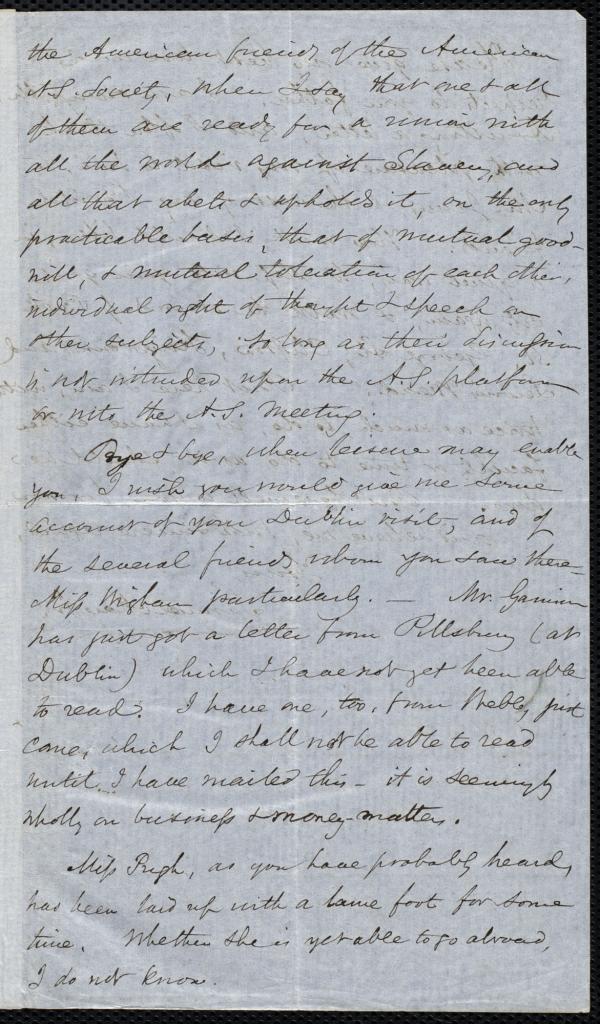 the American friends of the American
A.S. Society, when I say that one & all
of them are ready for a union with
all the world against Slavery, and
all that abets & upholds it, on the only
practicable basis, that of mutual good-
will, & mutual toleration of each other's
individual right of thought & speech on
other subjects, so long as their discussion
is not intruded upon the A.S. platform
or into the A.S. meeting.
Bye & bye, when leisure may enable
you, I wish you would give me some
account of your Dublin visit, and of
the several friends whom you saw there –
Miss Wigham particularly. — Mr. Garrison
has just got a letter from Pillsbury (at
Dublin) which I have not yet been able
to read. I have one, too, from Webb, just
come, which I shall not be able to read
until I have mailed this – it is seemingly
wholly on business & money-matters.
Miss Pugh, as you have probably heard,
has been laid up with a lame foot for some
time. Whether she is yet able to go abroad,
I do not know.